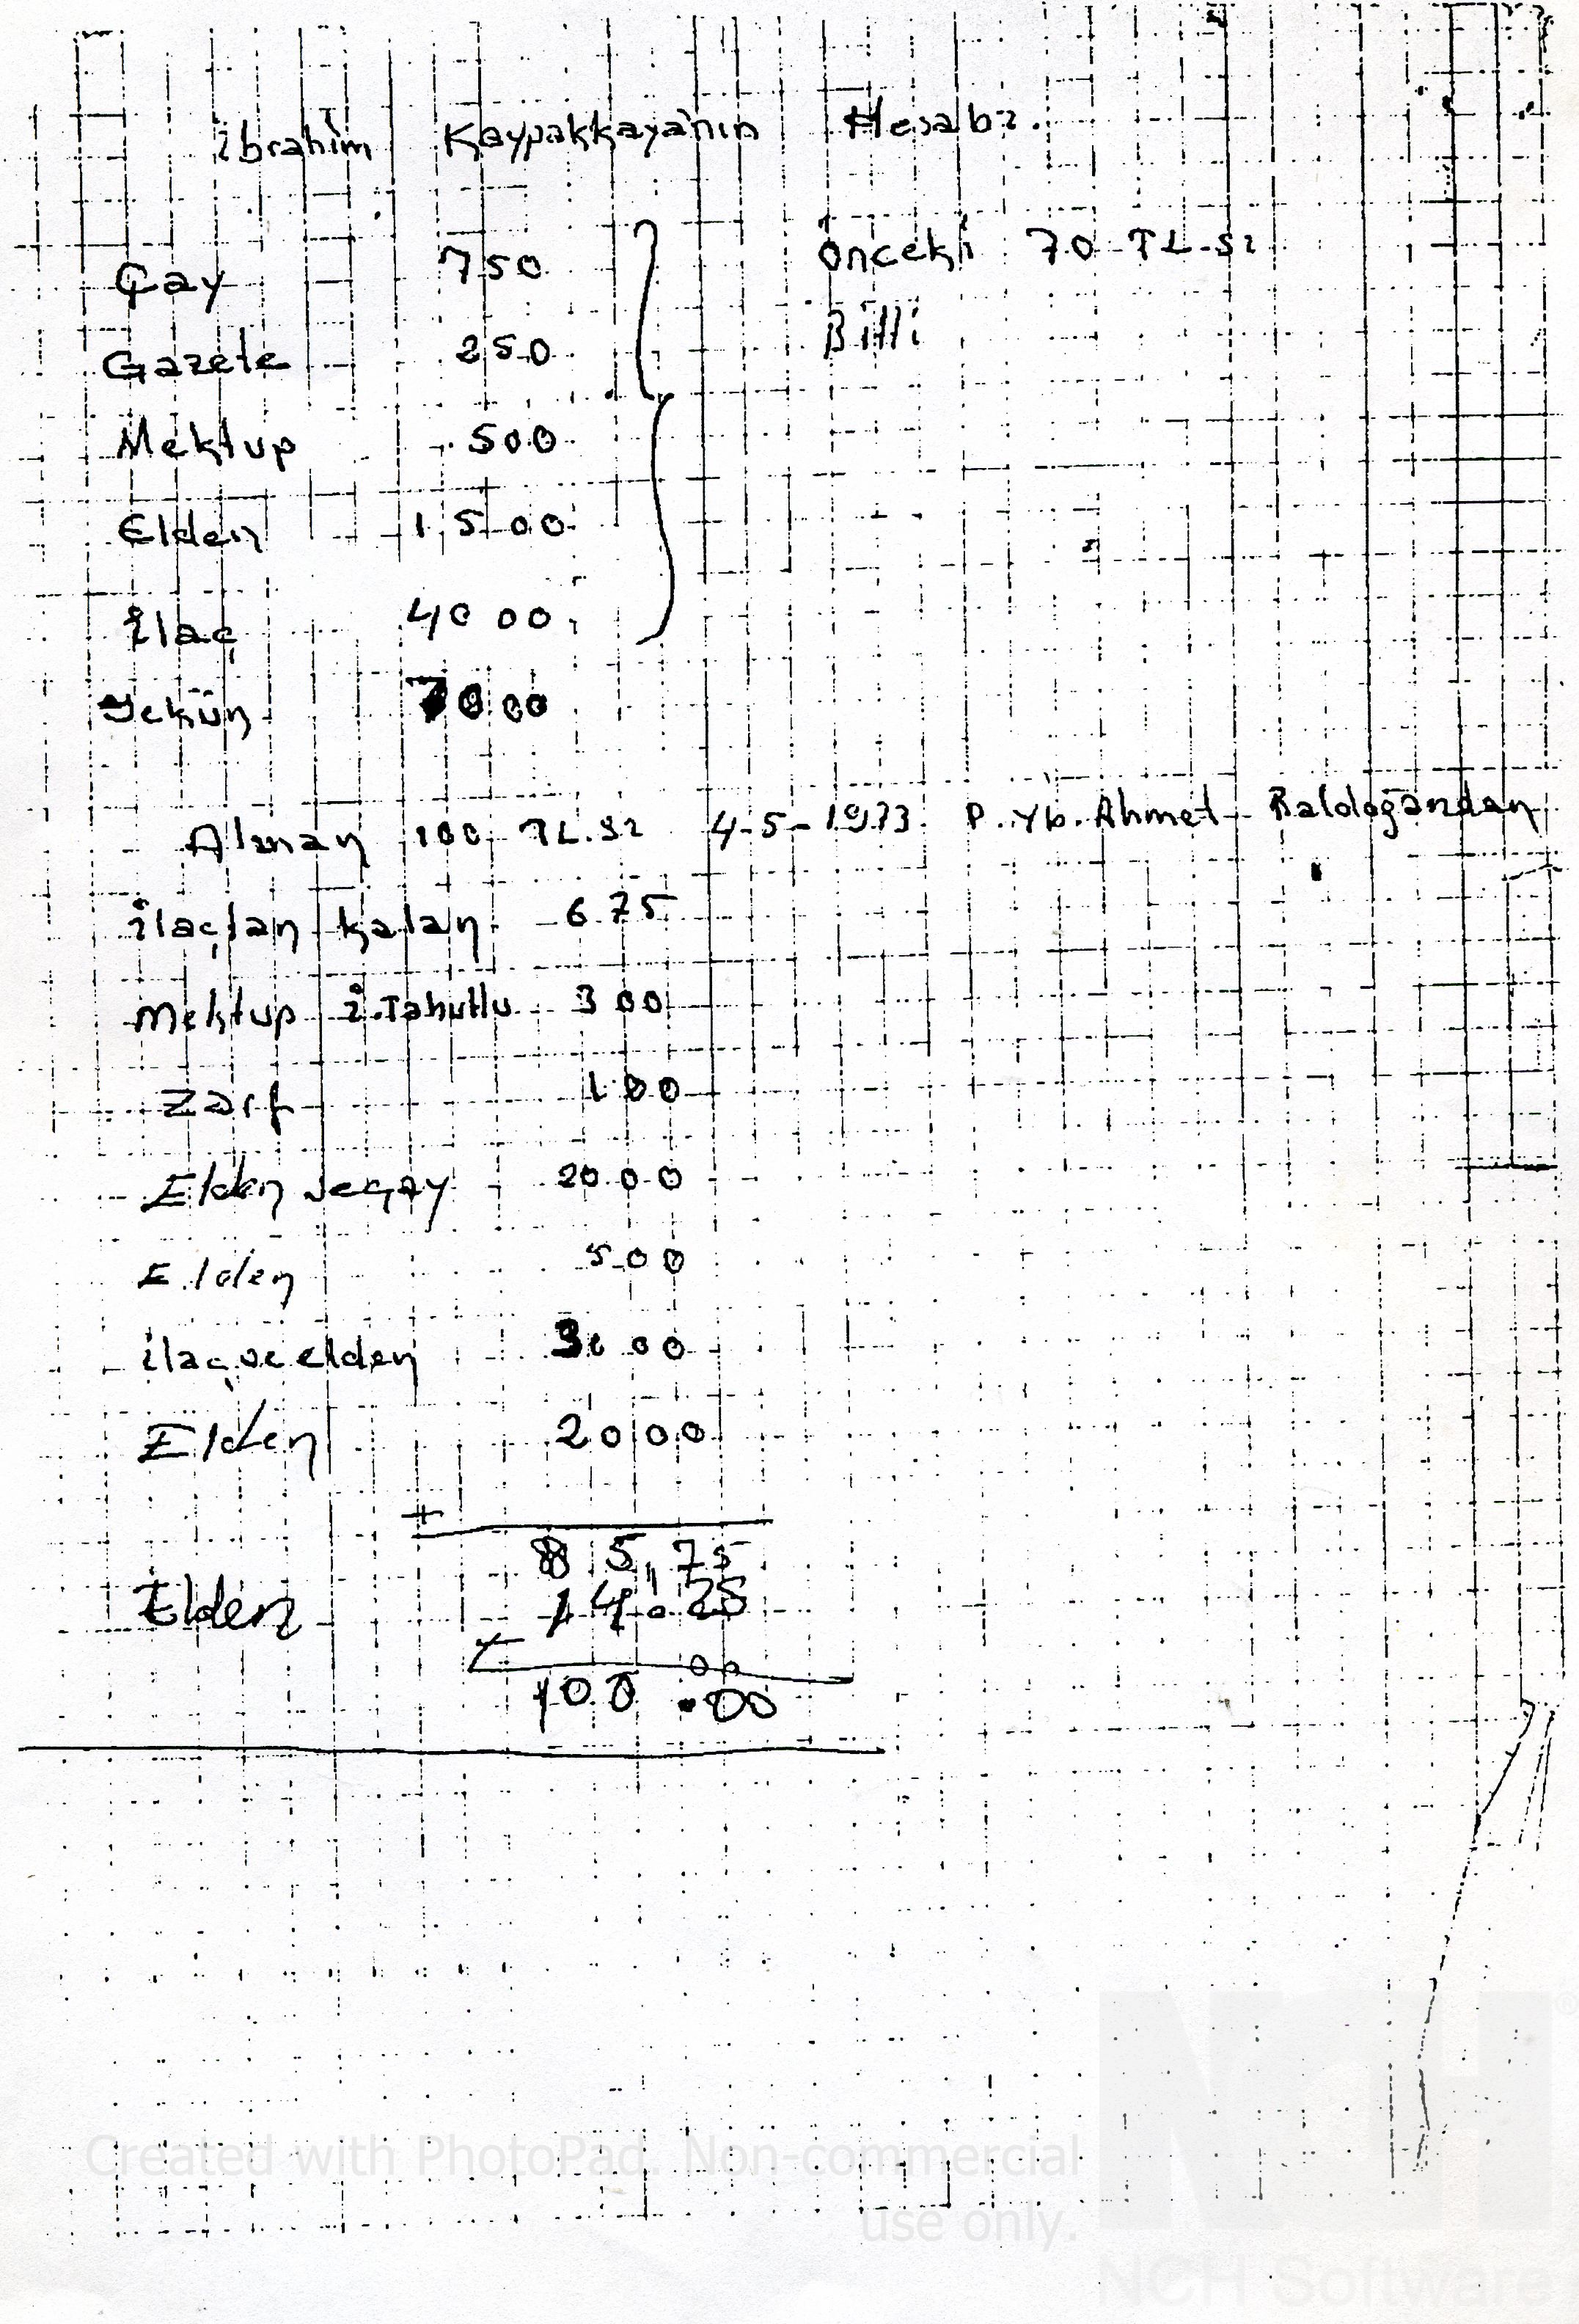 İbrahim Kaypakkaya'nın Hesabı.
Çay 750
Önceki 70 TL.sı
Gazete 250
Bitti
Mektup 500
Elden 1500
İlaç 4000
Yekün 7000
Alınan 100 TL.sı 4-5-1973 P. Yb. Ahmet Baldoğandan
İlaçtan kalan 675
Mektup İ.Tahutlu 300
Zarf 100
Elden ve çay 2000
Elden 500
ilaç ve elden 3000
Elden 2000
+
85,75
Elden 14.25
+
00
100.00
Created with PhotoPad. Non-commercial
use only.
NCH
NCH Software